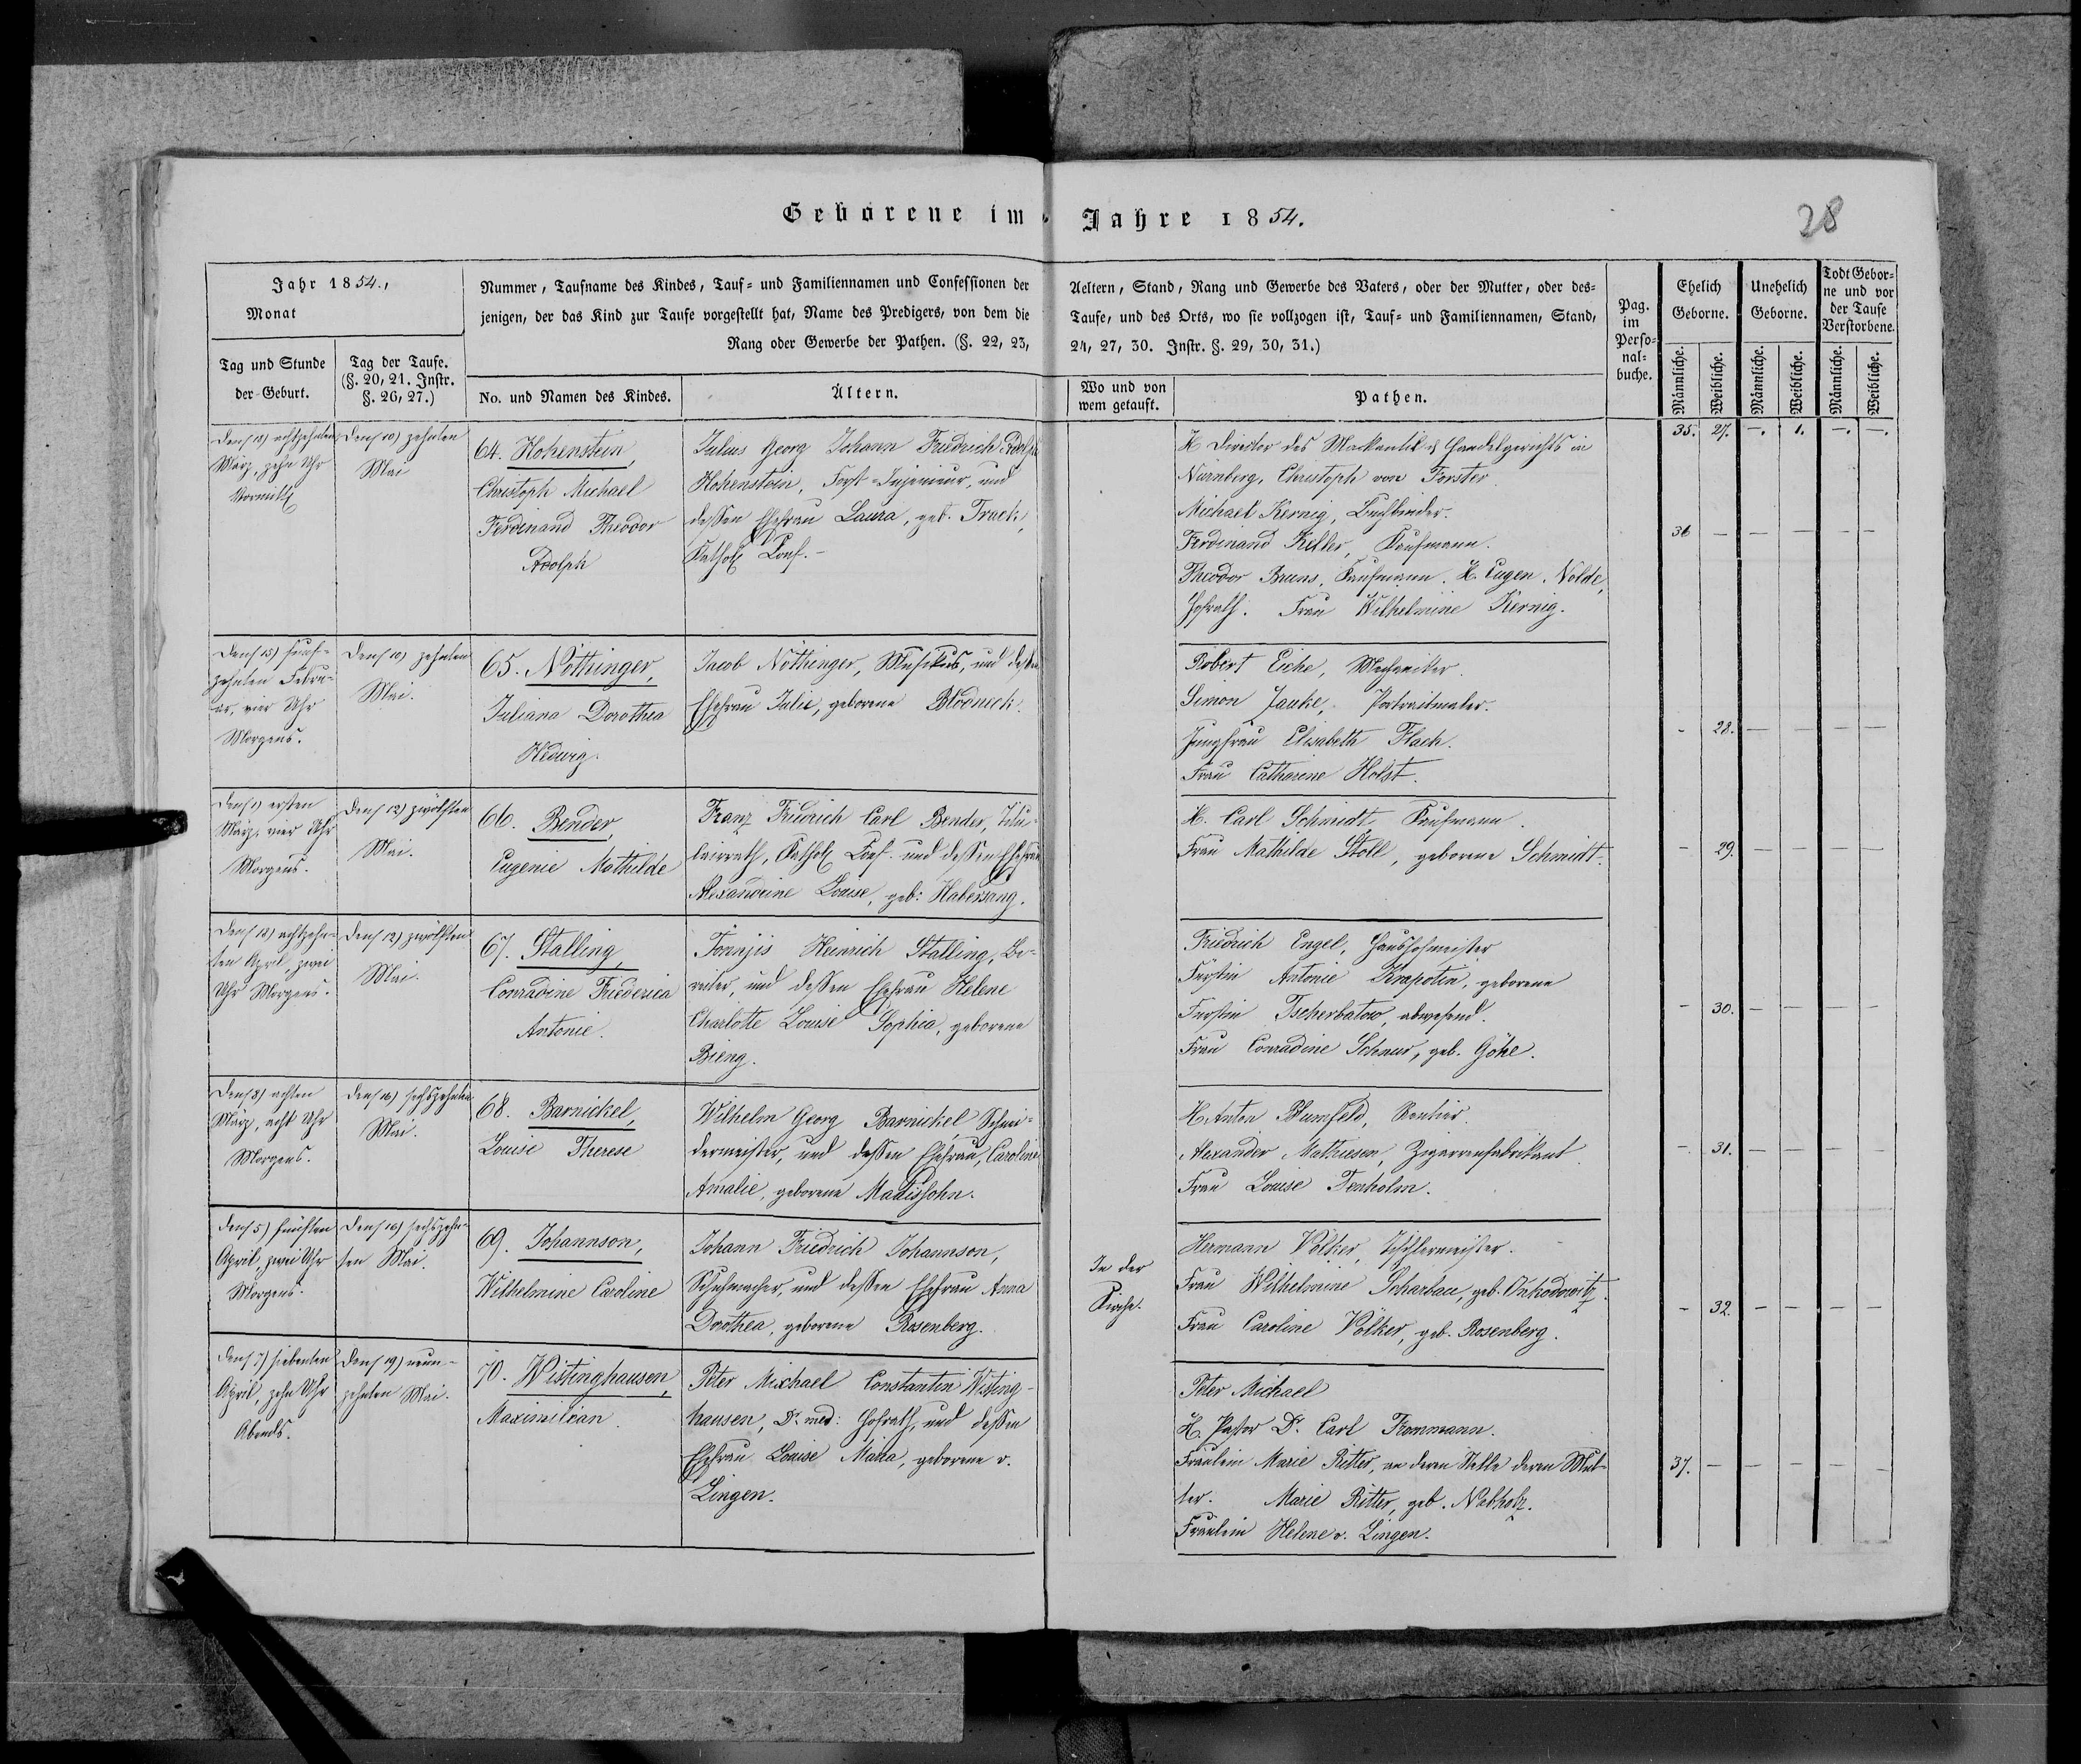 Geborene im Jahre 1854.
28
Jahr 1854.,
Monat
Tag und Stunde
der Geburt.
Tag der Taufe.
(§. 20, 21. Instr.
§. 26, 27.)
Nummer, Taufname des Kindes, Tauf- und Familiennamen und Confessionen der
jenigen, der das Kind zur Taufe vorgestellt hat, Name des Predigers, von dem die
Rang oder Gewerbe der Pathen. (§. 22, 23,
No. und Namen des Kindes.
Ältern.
Aeltern, Stand, Rang und Gewerbe des Vaters, oder der Mutter, oder des-
Taufe, und des Orts, wo sie vollzogen ist, Tauf- und Familiennamen, Stand,
24, 27, 30. Instr. §. 29, 30, 31.)
Wo und von
wem getauft.
Pathen.
Pag.
im
Perso-
nal-
buche.
Ehelich
Geborne.
Unehelich
Geborne.
Todt Gebor-
ne und vor
der Taufe
Verstorbene.
Männliche.
Weibliche.
Männliche.
Weibliche.
Männliche.
Weibliche.
35. 27. –. 1. –. –.
Den 18) achtzehnten
März, zehn Uhr
Vormitt
Den 10) zehnten
Mai
64. Hohenstein,
Christoph Michael
Ferdinand Theodor
Adolph
Julius Georg Johann Friedrich Adolph
Hohenstein, Forst-Injenieur, und
dessen Ehefrau Laura, geb. Track,
Kathol Conf.–
H Director des Merkantil & Handelgerichts in
Nürnberg, Christoph von Forster.
Michael Kernig, Buchbinder.
Ferdinand Keller, Kaufmann.
Theodor Bruns, Kaufmann. H. Eugen. Nolde,
Hofrath. Frau Wilhelmine Kernig.
36 – – – – –
Den 15) funf-
zehnten Febru-
ar, vier Uhr
Morgens.
Den 10) zehnten
Mai.
65. Nöthinger,
Juliana Dorothea
Hedwig.
Jacob Nöthinger, Musikus, und dessen
Ehefrau Julie, geborene Blodneck.
Robert Eiche, Mechaniker.
Simon Janke, Portraitmaler.
Jungfrau Elisabeth Flach.
Frau Catharine Holst.
– 28. – – – –
Den 1) ersten
März, vier Uhr
Morgens.
Den 12) zwölften
Mai.
66. Bender,
Eugenie Mathilde
Franz Friedrich Carl Bender, Titu-
lairrath, Kathol Conf. und dessen Ehefrau
Alexandrine Louise, geb: Habersang.
H. Carl Schmidt Kaufmann.
Frau Mathilde Stoll, geborene Schmidt.
– 29. – – – –
Den 18) achtzehn-
ten April, zwei
Uhr Morgens.
Den 12) zwölften
Mai.
67. Stalling,
Conradine Friederica
Antonie.
Tonnjis Heinrich Stalling, Be-
reiter, und dessen Ehefrau Helene
Charlotte Louise Sophia, geborene
Bieng.
Friedrich Engel, Haushofmeister
Fürstin Antonie Krapotin, geborene
Fürstin Tscherbatow, abwesend.
Frau Conradine Schnur, geb. Göhe.
– 30. – – – –
Den 8) achten
März, acht Uhr
Morgens.
Den 16) sechszehnten
Mai.
68. Barnickel,
Louise Therese
Wilhelm Georg Barnickel Schnei-
dermeister, und dessen Ehefrau, Caroline
Amalie, geborene Madissohn.
H. Anton Blumfeld, Rentier.
Alexander Mathiesen, Zigarrenfabrikant.
Frau Louise Tenholm.
– 31. – – –
Den 5) fünften
April, zwei Uhr
Morgens.
Den 16) sechszehn-
ten Mai.
69. Johannson,
Wilhelmine Caroline
Johann Friedrich Johannson,
Schuhmacher, und dessen Ehefrau Anna
Dorothea, geborene Rosenberg.
In der
Kirche.
Hermann Völker, Tischlermeister.
Frau Wilhelmine Scharbau, geb. Onkodowitz.
Frau Caroline Völker, geb. Rosenberg.
– 32. – – – –
Den 7) siebenten
April, zehn Uhr
Abends.
Den 19) neun-
zehnten Mai.
70. Wistinghausen,
Maximilian.
Peter Michael Constantin Wisting-
hausen, Dr. med: Hofrath, und dessen
Ehefrau Louise Maria, geborene v.
Lingen.
Peter Michael
H. Pastor Dr. Carl Frommann.
Fräulein Marie Ritter, an deren Stelle deren Mut-
ter. Marie Ritter, geb. Nabholz.
Fräulein Helene v. Lingen.
37. – – – – –